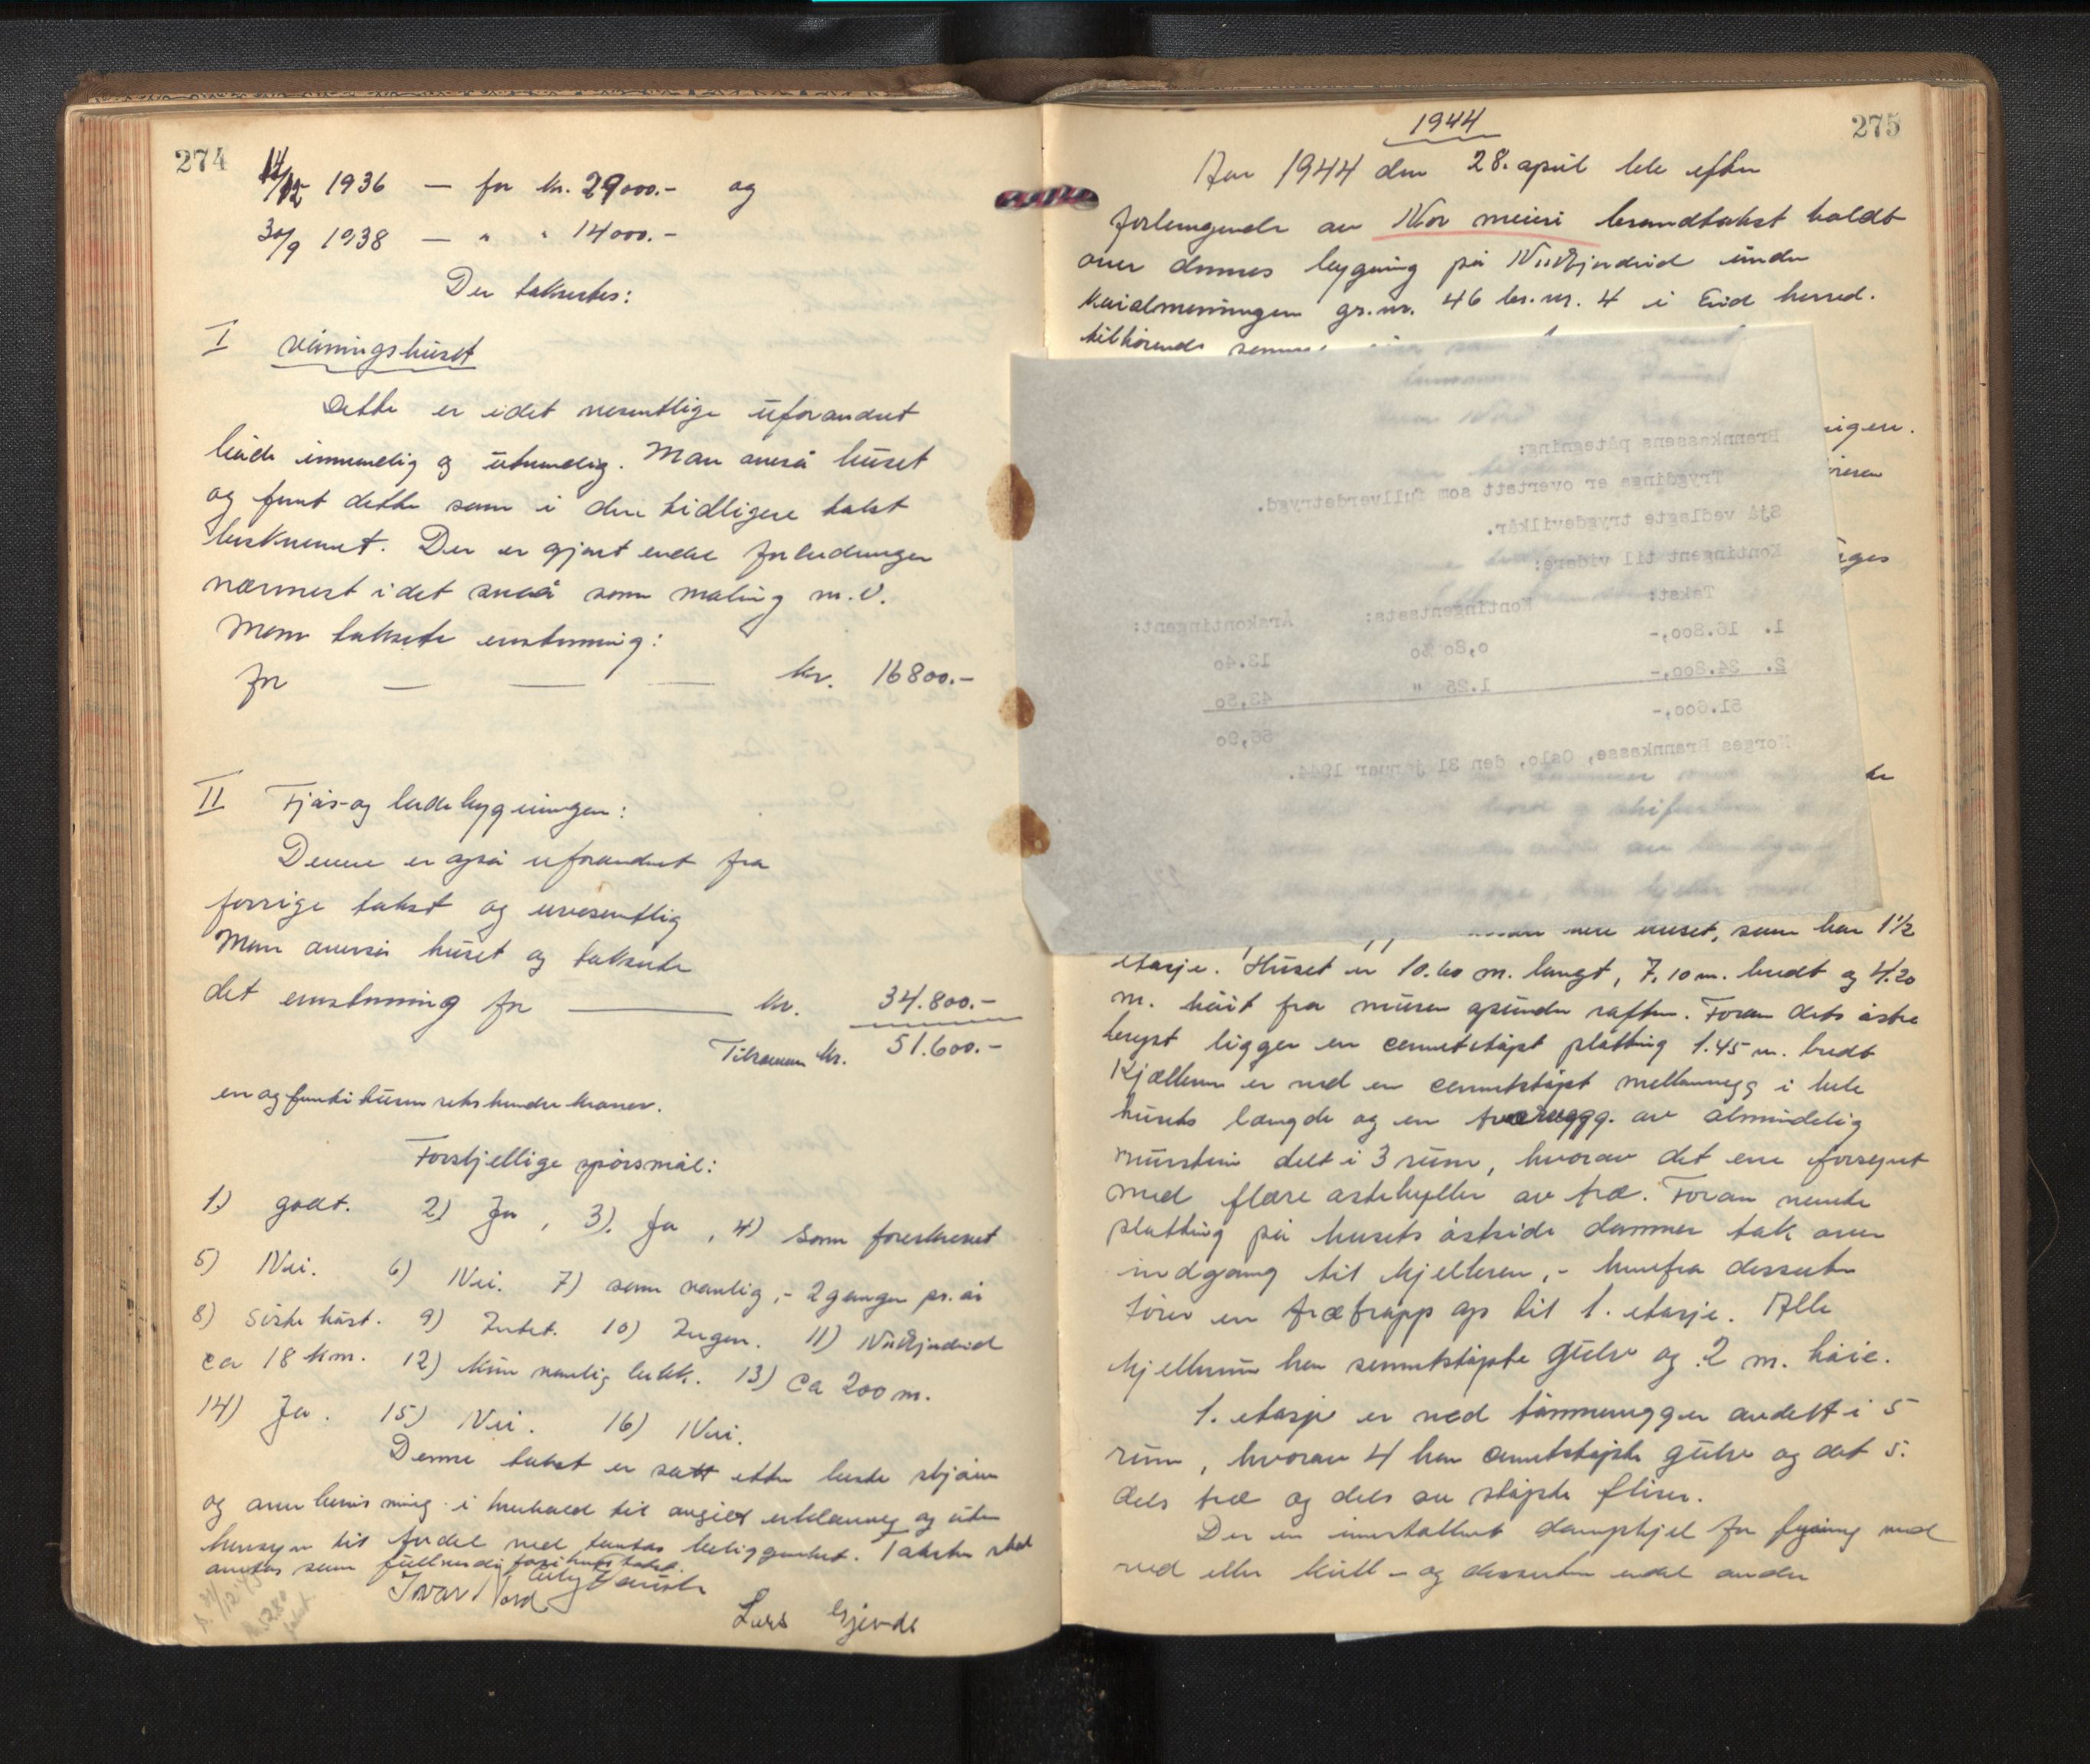 274
14/12 1936 — for kr. 29000.- og
30/9 1938 — " " 14000.-
Der takseredes:
I våningshuset
Dette er i det vesentlige uforandret
både innvendig og utvendig. Man anså huset
og fant dette som i den tidligere takst
beskrevet. Der er gjort endel forbedringer
nærmest i det små som maling m.v.
Man takserte enstemmig:
for — — — kr. 16800.-
II Fjøs- og ladebygningen:
Denne er også uforandret fra
forrige takst og uvesentlig
Man anså huset og takserte
det enstemmig for — kr. 34.800.-
Tilsammen kr. 51.600.-
en og femti tusen seks hundre kroner.
Forskjellige spørsmål:
1) godt. 2) Ja, 3). Ja, 4) Som foreskrevet
5) Nei. 6) Nei. 7) som vanlig,- 2 ganger pr. år
8) Siste høst. 9) Intet. 10) Ingen. 11) Nordfjordeid
ca 18 km. 12) kun vanlig bekk. 13) ca 200 m.
14) Ja. 15) Nei. 16) Nei.
Denne takst er satt etter beste skjønn
og overbevisning i henhold til avgitt erklæring og uten
hensyn til andel ved tomtas beliggenhet. Taksten skal
ansees som fullverdig takst.
Ivar Nord
Lars Gjerde
1944
275
Aar 1944 den 28. april ble efter
forlangende av Nor meieri brandtakst holdt
over dennes bygning på Nordfjordeid under
gr.nr. 46 br.nr. 4 i Eid herred.
tilhørende samme
Brannkassens påtegning:
Trygdinga er overtatt som fullverdetrygd.
Sjå vedlagte trygdevilkår.
Kontingent till vidare:
Takst: Kontingentsats: Årskontingent:
1. 16.800,- 0,80 ‰ 13.40
2. 34.800,- 1.25 " 43,50
51.600,- 56,90
Norges Brannkasse, Oslo, den 31 januar 1944.
huset, som har 1 1/2
etasje. Huset er 10.60 m. langt, 7,10 m. bredt og 4.20
m. høit fra murens grunn raften. Foran dets østre
ligger en cementstøpt platting 1.45 m. bredt
Kjelleren er ved en cementstøpt mellemvegg i hele
husets længde og en tværvegg av almindelig
murstein delt i 3 rum, hvorav det ene forsynt
med flere ostehyller av træ. Foran nevnte
platting på husets østside danner tak over
indgang til kjelleren,- herfra dessuten
fører en træetrapp op til 1. etasje. Alle
kjellerrum har sementstøpte gulv og 2 m. høie.
1. etasje er ved tømmervegger avdelt i 5
rum, hvorav 4 har cementstøpte gulv og det 5.
dels træ og dels av støpte fliser.
Der er innstallert dampkjel for fyring med
ved eller kull – og dessuten endel andre